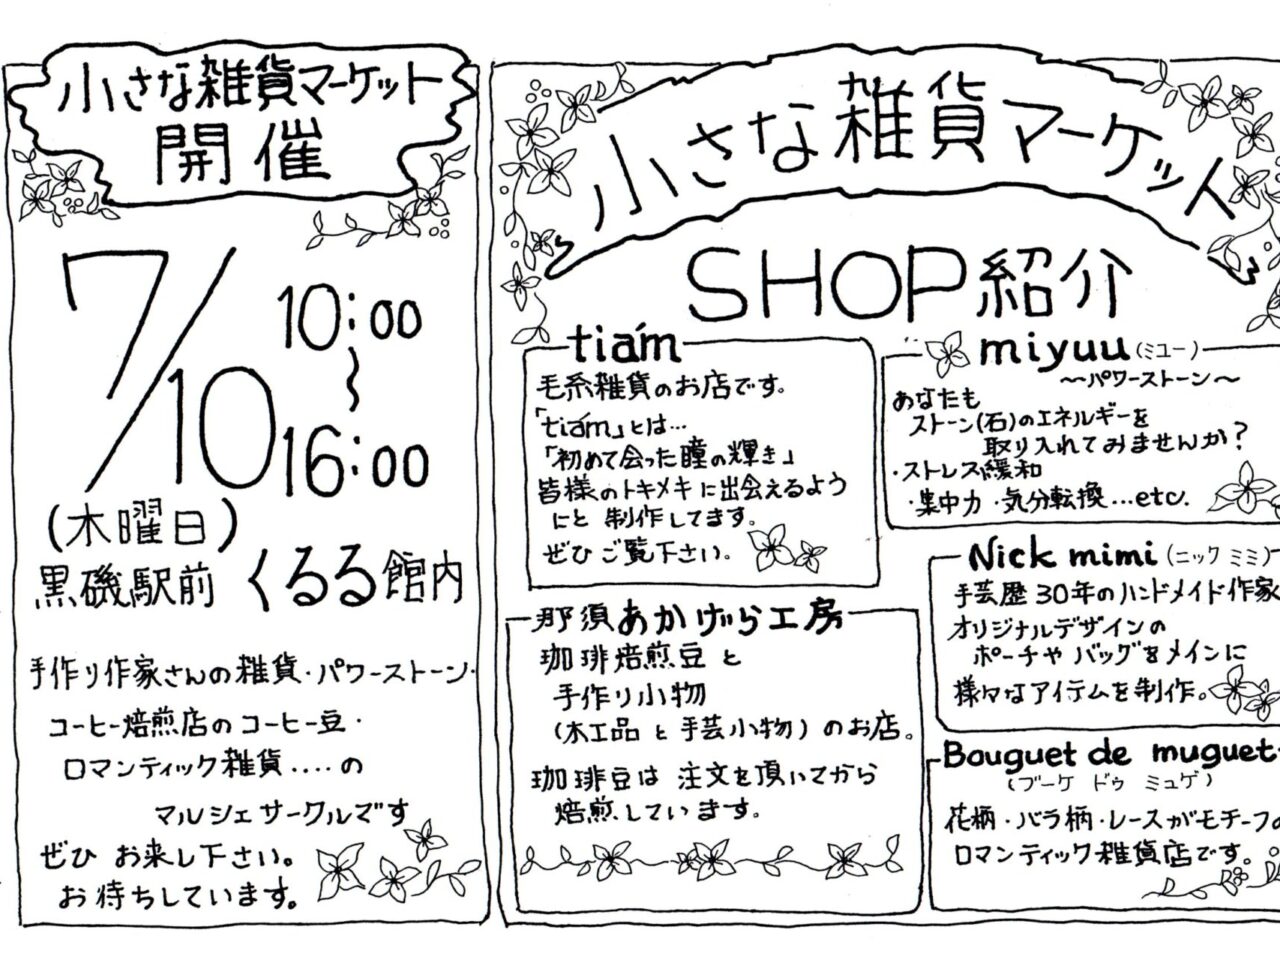 小さな雑貨マーケット
開催
7/10
10:00
〜
16:00
(木曜日)
黒磯駅前 くるる館内
手作り作家さんの雑貨・パワーストーン・
コーヒー焙煎店のコーヒー豆・
ロマンティック雑貨....の
マルシェサークルです
ぜひ お来し下さい。
お待ちしています。
小さな雑貨マーケット
SHOP紹介
tiám
毛糸雑貨のお店です。
「tiám」とは…
「初めて会った瞳の輝き」
皆様のトキメキに出会えるよう
にと 制作してます。
ぜひご覧下さい。
miyuu(ミユー)
〜パワーストーン〜
あなたも
ストーン(石)のエネルギーを
取り入れてみませんか?
・ストレス緩和
・集中力・気分転換…etc.
那須あかげら工房
珈琲焙煎豆と
手作り小物
(木工品と手芸小物)のお店。
珈琲豆は注文を頂いてから
焙煎しています。
Nick mimi(ニック ミミ)
手芸歴30年のハンドメイド作家
オリジナルデザインの
ポーチやバッグをメインに
様々なアイテムを制作。
Bouguet de muguet
(ブーケ ドゥ ミュゲ)
花柄・バラ柄・レースがモチーフの
ロマンティック雑貨店です。